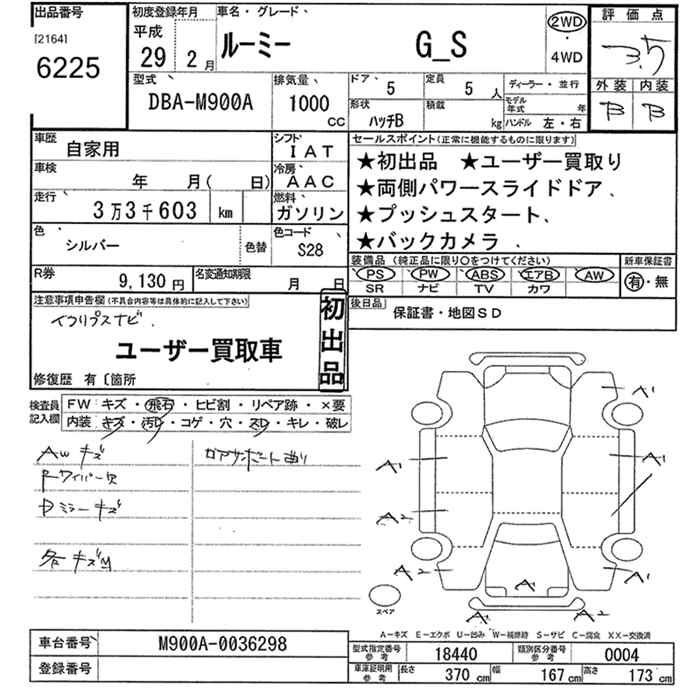 出品番号
[2164]
6225
初度登録年月
平成
29 2月
車名・グレード、
ルーミー G_S
2WD
・
4WD
評価点
3.5
外装 内装
B B
型式
DBA-M900A
排気量、
1000 CC
ドア、 5
定員 5 人
ディーラー・並行
形状 ハッチB
積載 kg
モデル年式 年
ハンドル 左・右
車歴
自家用
シフト
IAT
車検
年 月( 日)
冷房
AAC
走行
3万3千603 km
燃料
ガソリン
色
シルバー
色替
色コード
S28
R券
9,130円
名変通知期限
月 日
セールスポイント(正常に機能するものに限ります)
★初出品 ★ユーザー買取り
★両側パワースライドドア、
★プッシュスタート、
★バックカメラ
装備品(純正品に限り○をつけてください)
PS PW ABS エアB AW
SR ナビ TV カワ
新車保証書
有・無
後日品
保証書・地図SD
注意事項申告欄(不具合内容等は具体的に記入して下さい)
ナビ.
ユーザー買取車
初出品
修復歴 有〔箇所
検査員記入欄
FW キズ・飛石・ヒビ割・リペア跡・×要
内装 キズ・汚レ・コゲ・穴・スレ・キレ・破レ
AW キズ
Rワイパー欠
Dミラーキズ
各キズM
ロアサポート曲り
A1
A1
A1
A2
A2
A2
A1
A1
A2
スペア
A-キズ E-エクボ U-凹み W-補修跡 S-サビ C-腐食 XX-交換済
車台番号
M900A-0036298
登録番号
型式指定番号 参考 18440
類別区分番号 参考 0004
車庫証明用 参考 長さ 370 cm 幅 167 cm 高さ 173 cm